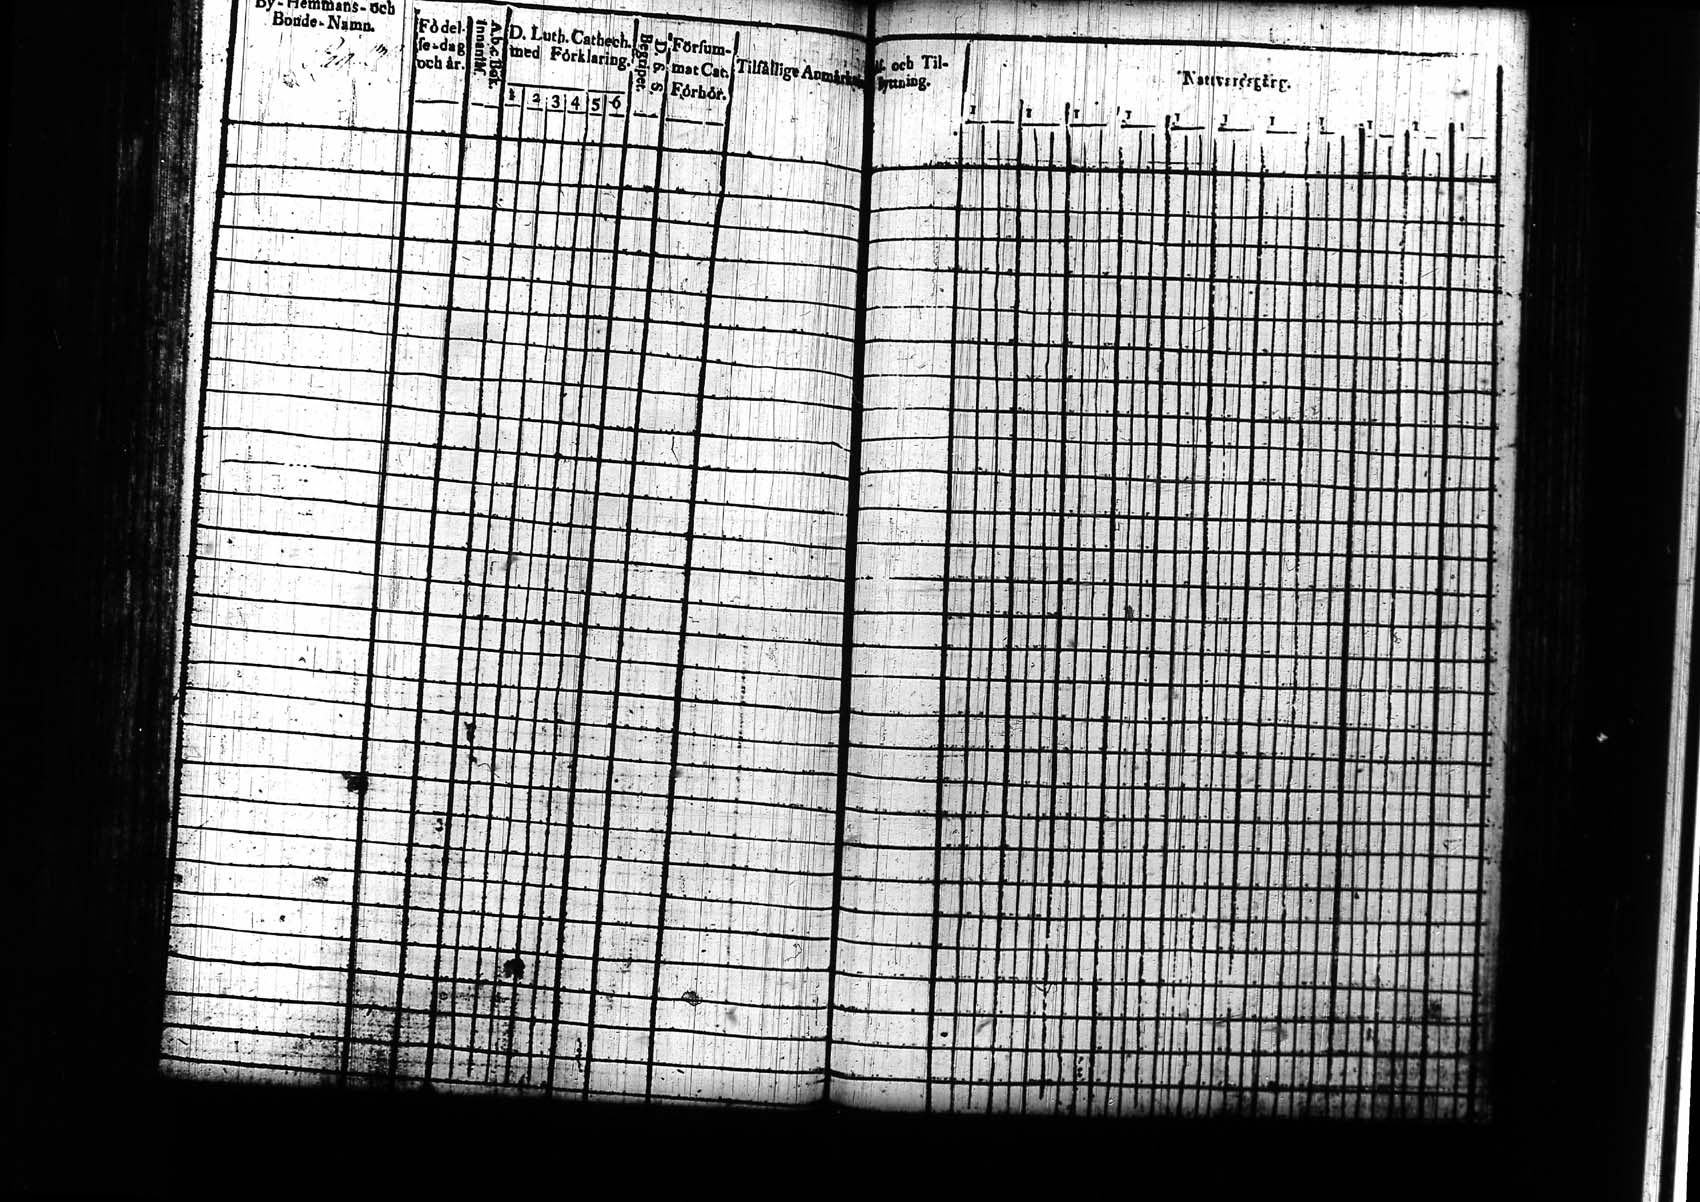 By-Hemmans- och
Bonde-Namn.
Födel-
se-dag
och år.
A.b.c. Bok.
innantil.
D. Luth. Cathech.
med Förklaring.
1 2 3 4 5 6
Begripet.
D. S. S.
Försum-
mat Cat.
Förhör.
Tilfällige Anmärkn
och Til-
flyttning.
Nattvardsgång.
1 1 1 1 1 1 1 1 1 1 1